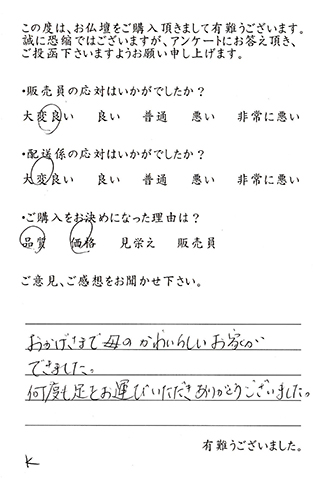 この度は、お仏壇をご購入頂きまして有難うございます。
誠に恐縮ではございますが、アンケートにお答え頂き、
ご投函下さいますようお願い申し上げます。
・販売員の応対はいかがでしたか？
大変良い 良い 普通 悪い 非常に悪い
・配送係の応対はいかがでしたか？
大変良い 良い 普通 悪い 非常に悪い
・ご購入をお決めになった理由は？
品質 価格 見栄え 販売員
ご意見、ご感想をお聞かせ下さい。
おかげさまで母のかわいらしいお家が
できました。
何度も足をお運びいただきありがとうございました。
有難うございました。
K